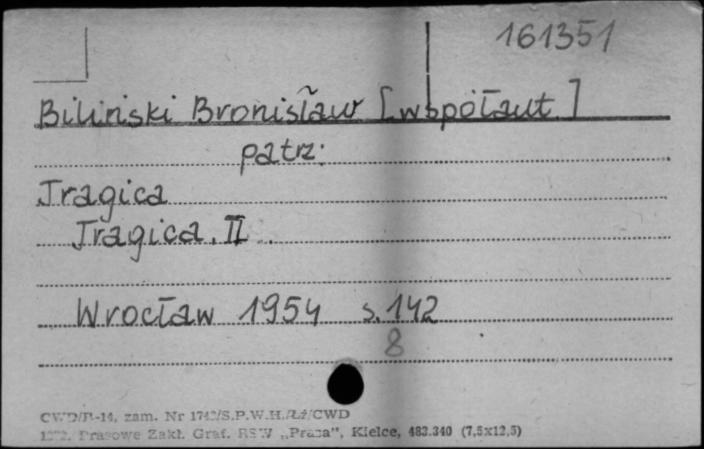 161351
Biliński Bronisław [współaut.]
patrz:
Tragica
Tragica. II.
Wrocław 1954 s. 142
8
CWD/B-14, zam. Nr /S.P.W.H./Łź/CWD
Prasowe Zakł. Graf. RSW „Prasa”, Kielce, 483.340 (7,5x12,5)